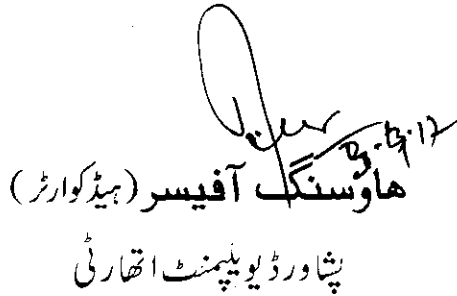 ھاوسنگ آفیسر (ہیڈکوارٹر)
پشاور ڈیویلپمنٹ اتھارٹی